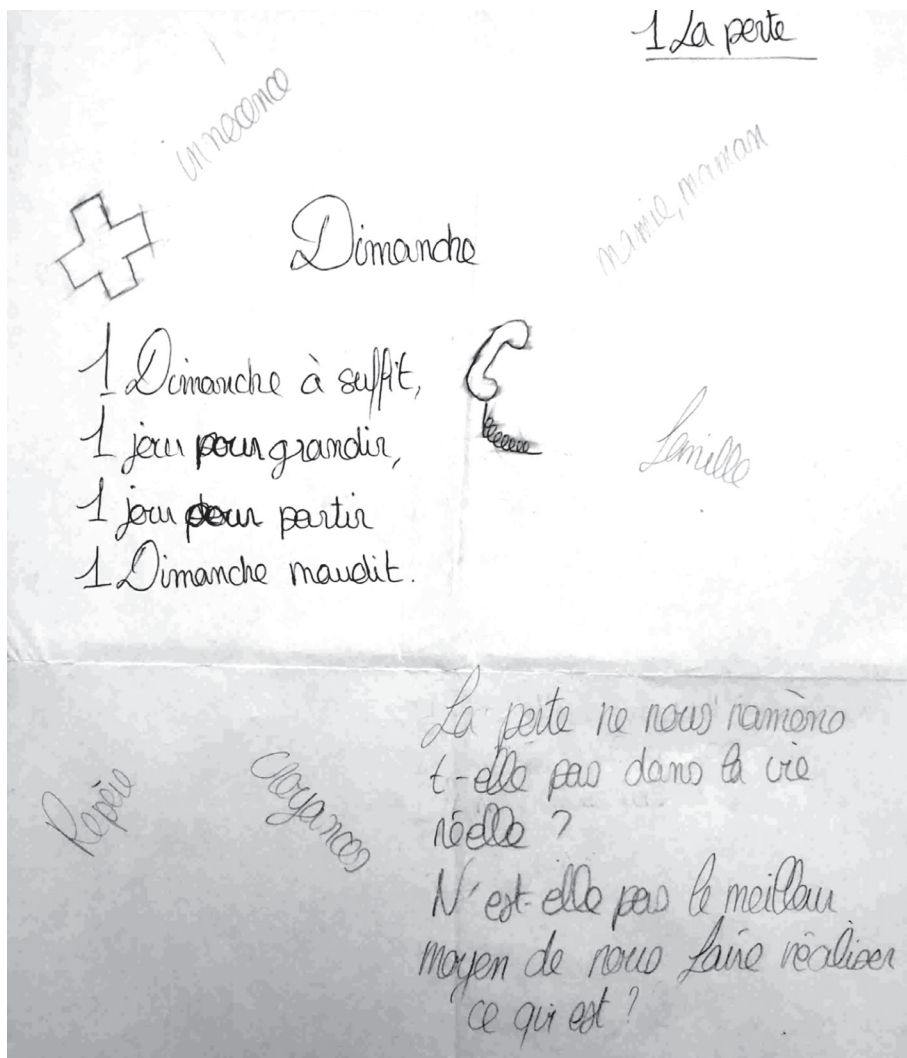 1 La perte
innocence
mamie, maman
Dimanche
1 Dimanche à suffit,
1 jour pour grandir,
1 jour pour partir
1 Dimanche maudit.
famille
Repère
croyances
La perte ne nous ramène
t-elle pas dans la vie
réelle ?
N'est-elle pas le meilleur
moyen de nous faire réaliser
ce qui est ?